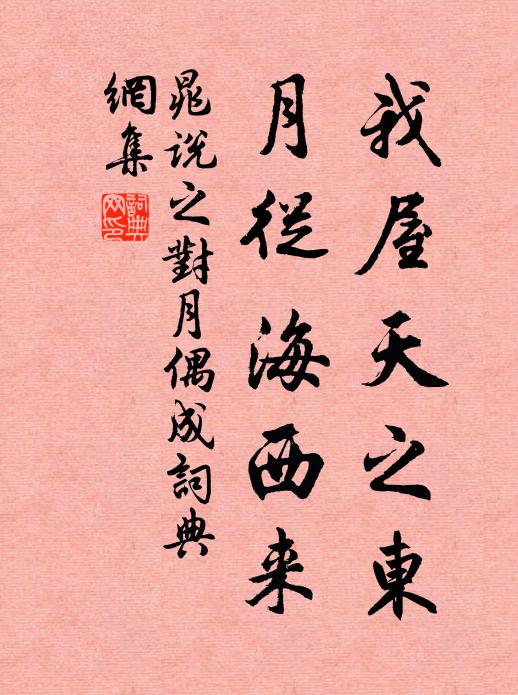 我屋天之東
月從海西来
晁說之對月偶成詞典
網集
詞典
网印